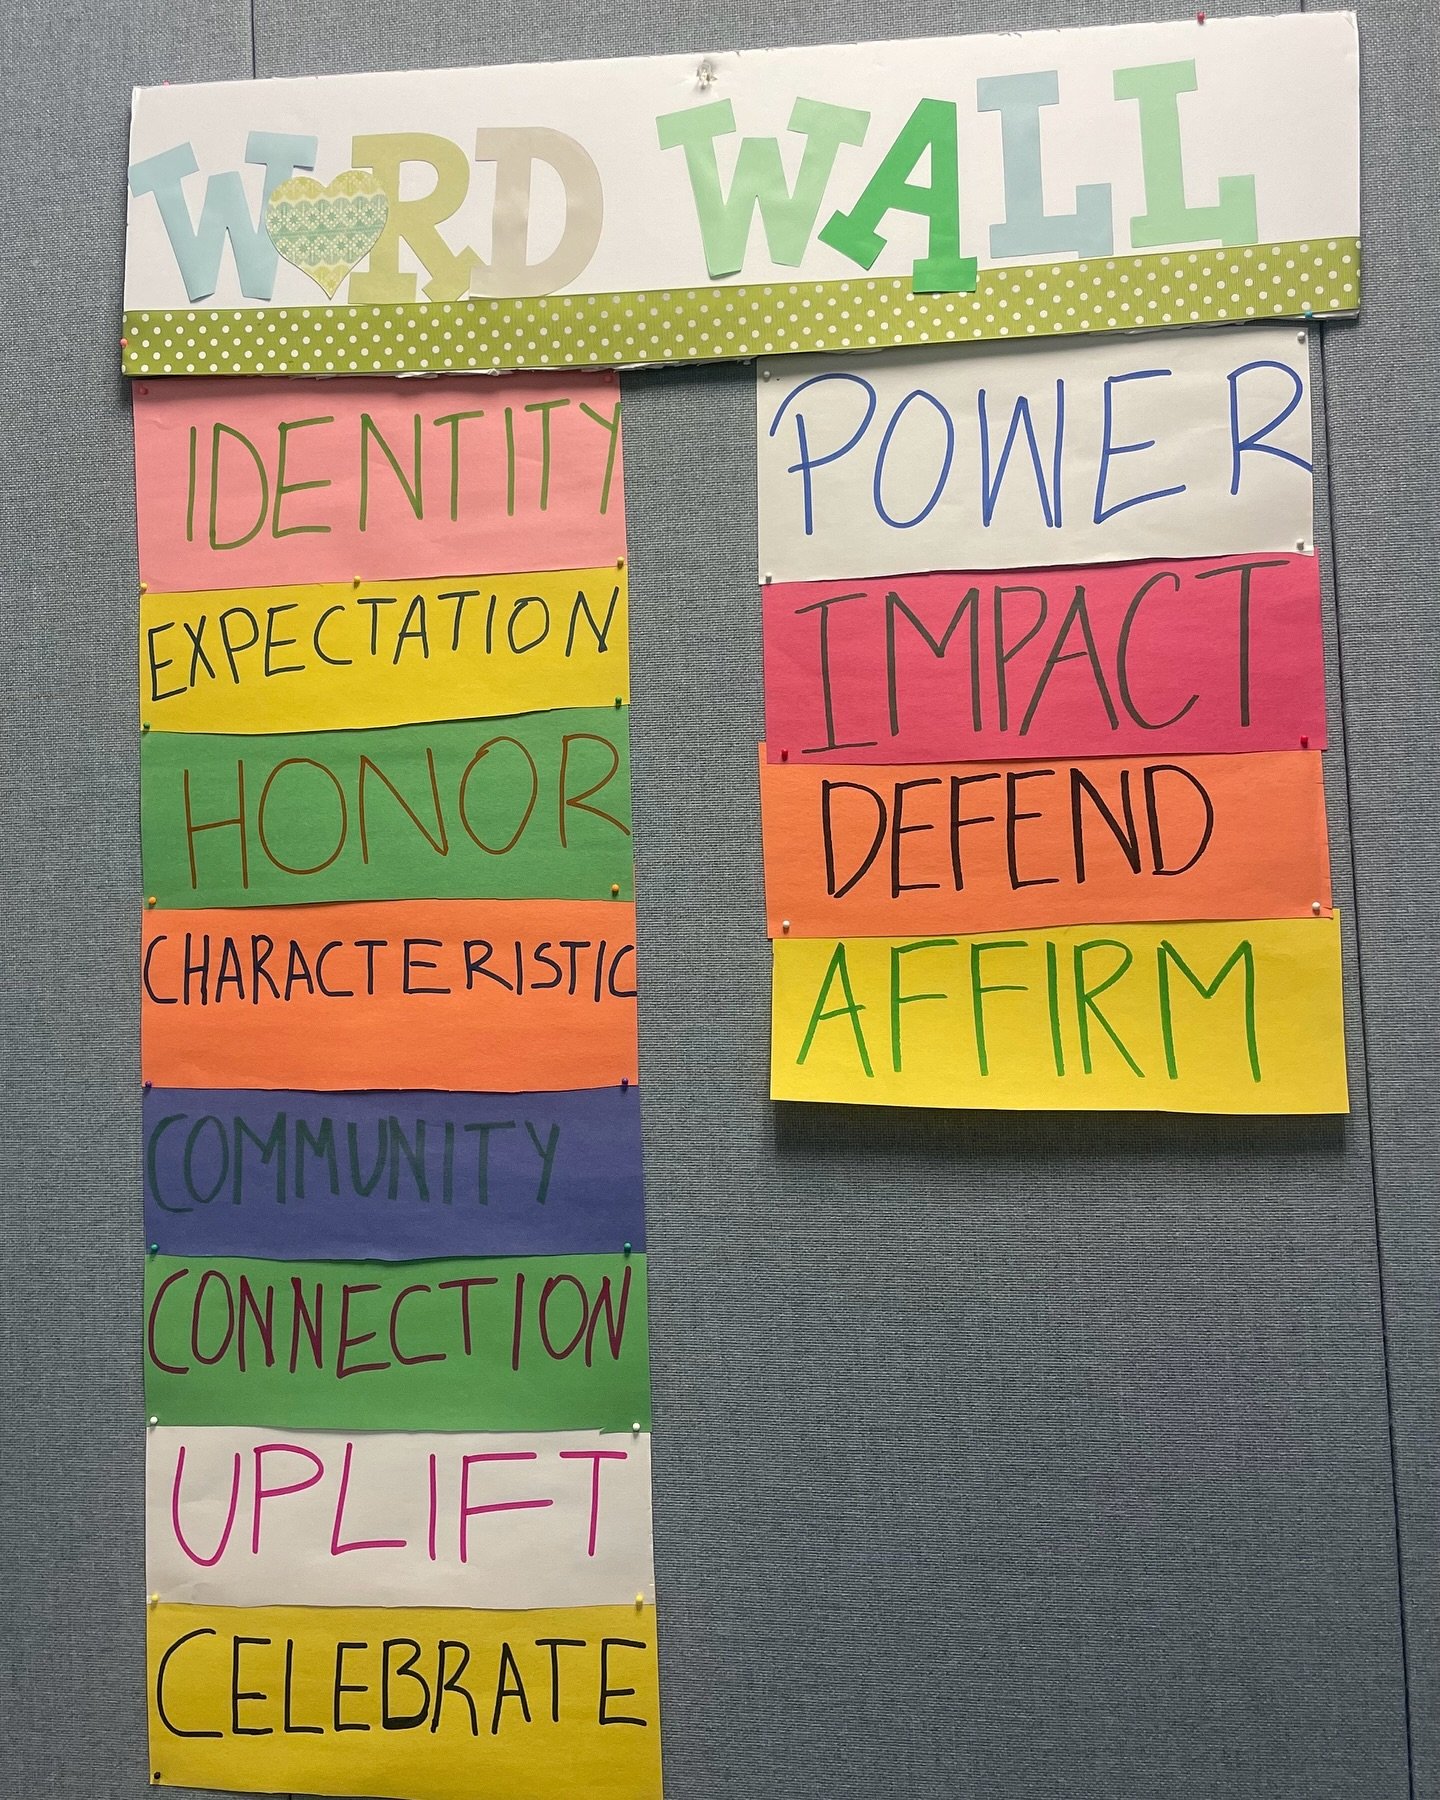 WORD WALL
IDENTITY
EXPECTATION
HONOR
CHARACTERISTIC
COMMUNITY
CONNECTION
UPLIFT
CELEBRATE
POWER
IMPACT
DEFEND
AFFIRM